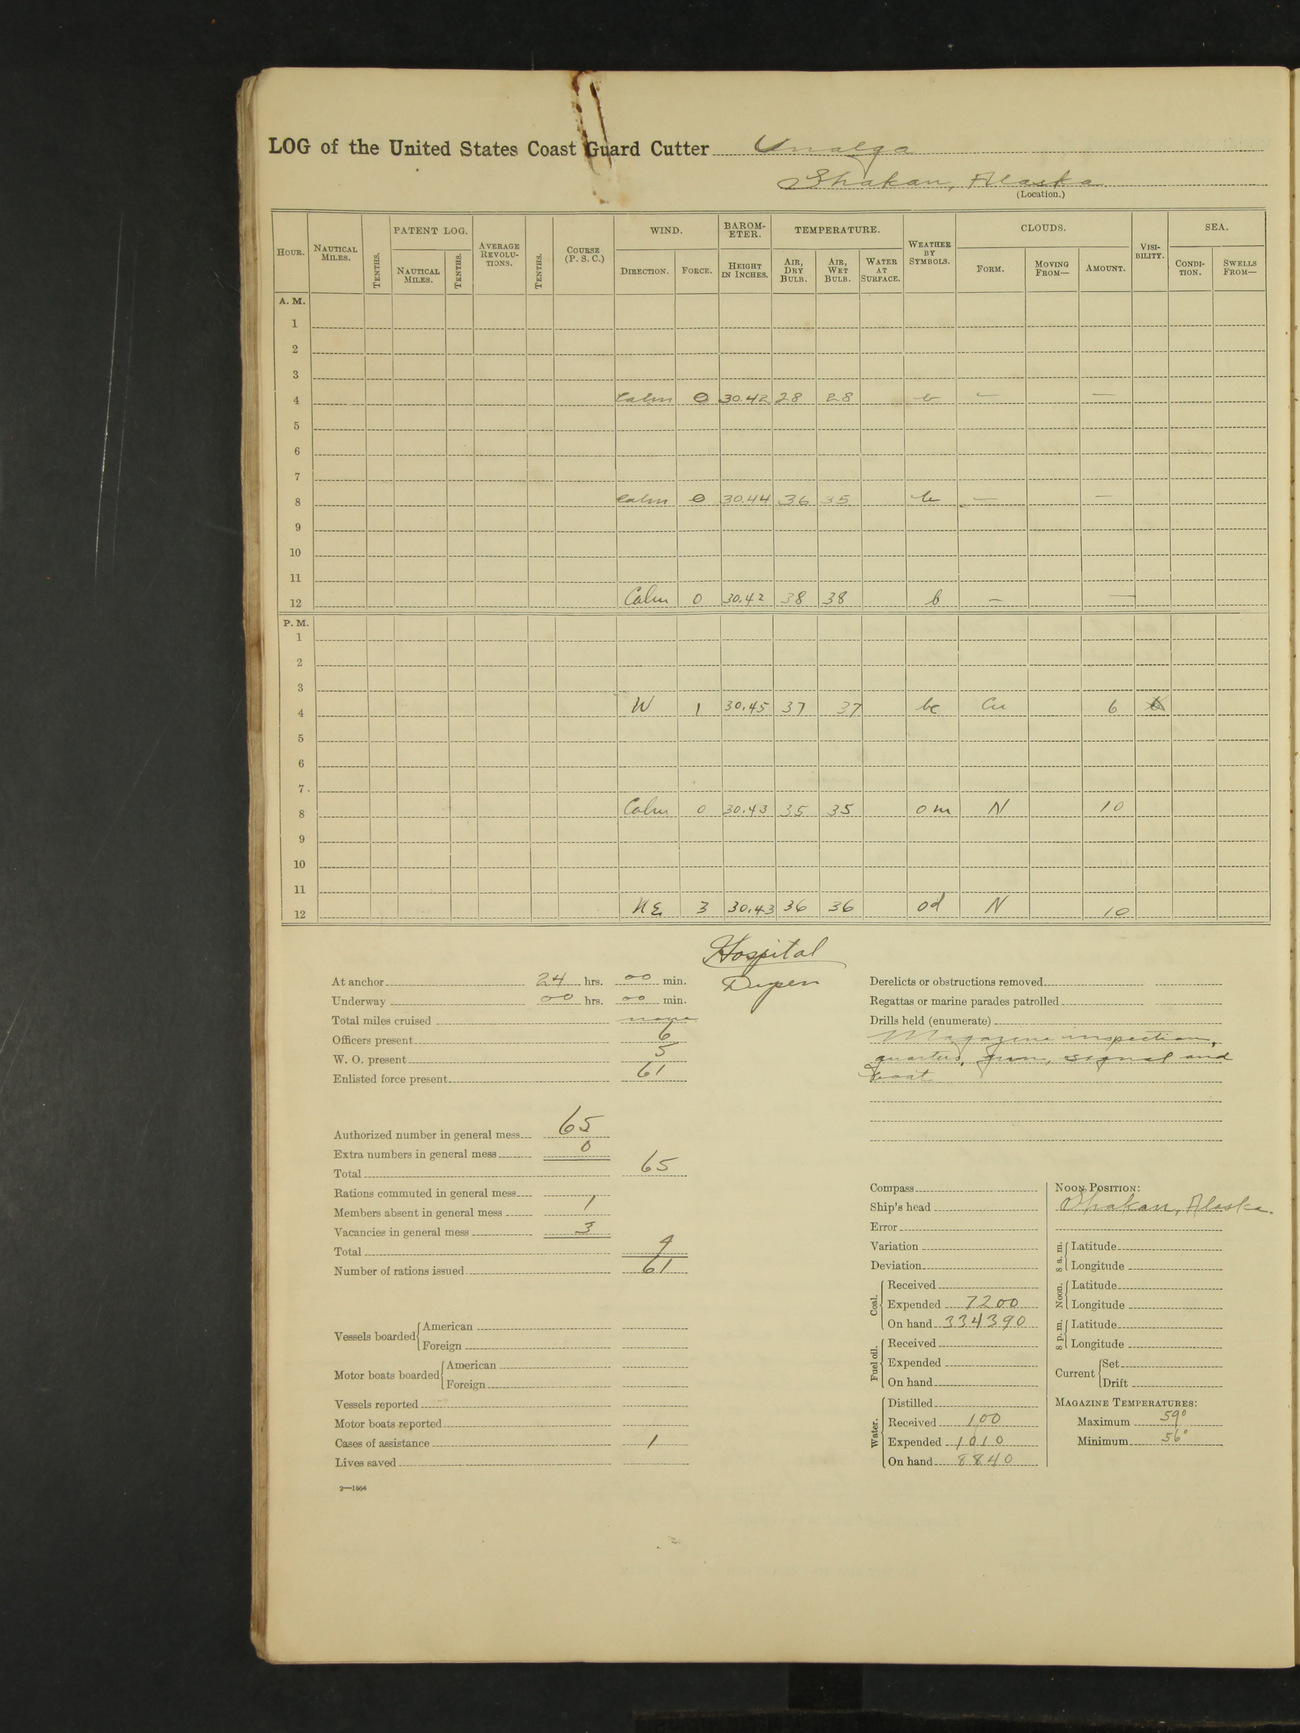 LOG of the United States Coast Guard Cutter Unalga
Shakan, Alaska
(Location.)
HOUR. NAUTICAL MILES. TENTHS. PATENT LOG. NAUTICAL MILES. TENTHS. AVERAGE REVOLUTIONS. TENTHS. COURSE (P. S. C.) WIND. DIRECTION. FORCE. BAROMETER. HEIGHT IN INCHES. TEMPERATURE. AIR, DRY BULB. AIR, WET BULB. WATER AT SURFACE. WEATHER BY SYMBOLS. CLOUDS. FORM. MOVING FROM— AMOUNT. VISIBILITY. SEA. CONDITION. SWELLS FROM—
A. M.
1
2
3
4 Calm 0 30.42 28 28 b — —
5
6
7
8 Calm 0 30.44 36 35 b — —
9
10
11
12 Calm 0 30.42 38 38 b — —
P. M.
1
2
3
4 W 1 30.45 37 37 bc Cu 6
5
6
7
8 Calm 0 30.43 35 35 om N 10
9
10
11
12 NE 3 30.43 36 36 od N 10
Hospital
At anchor 24 hrs. 00 min.
Underway 00 hrs. 00 min.
Total miles cruised none
Officers present 6
W. O. present 5
Enlisted force present 61
Authorized number in general mess 65
Extra numbers in general mess 0
Total 65
Rations commuted in general mess
Members absent in general mess 1
Vacancies in general mess 3
Total 4
Number of rations issued 61
Vessels boarded American
Foreign
Motor boats boarded American
Foreign
Vessels reported
Motor boats reported
Cases of assistance 1
Lives saved
2—1564
Derelicts or obstructions removed
Regattas or marine parades patrolled
Drills held (enumerate)
Magazine inspection,
quarters, gun, signal and
boat
Compass
Ship's head
Error
Variation
Deviation
Coal. Received
Expended 7200
On hand 334390
Fuel oil. Received
Expended
On hand
Water. Distilled
Received 100
Expended 1010
On hand 8840
NOON POSITION:
Shakan, Alaska.
8 a. m. Latitude
Longitude
Noon. Latitude
Longitude
8 p. m. Latitude
Longitude
Current Set
Drift
MAGAZINE TEMPERATURES:
Maximum 59°
Minimum 56°